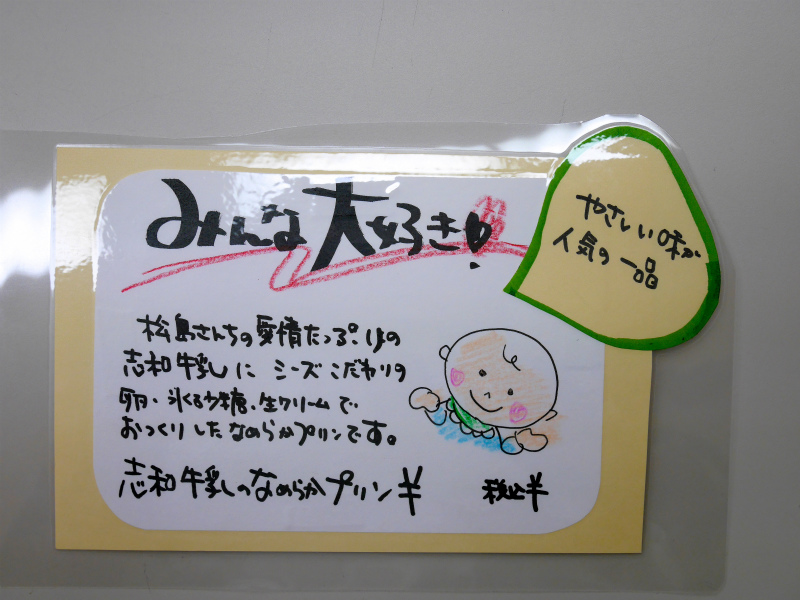 みんな大好き
やさしい味が
人気の一品
松島さんちの愛情たっぷりの
志和牛乳に シーズこだわりの
卵・氷くろ砂糖・生クリームで
おつくりしたなめらかプリンです。
志和牛乳のなめらかプリン ¥
税込¥